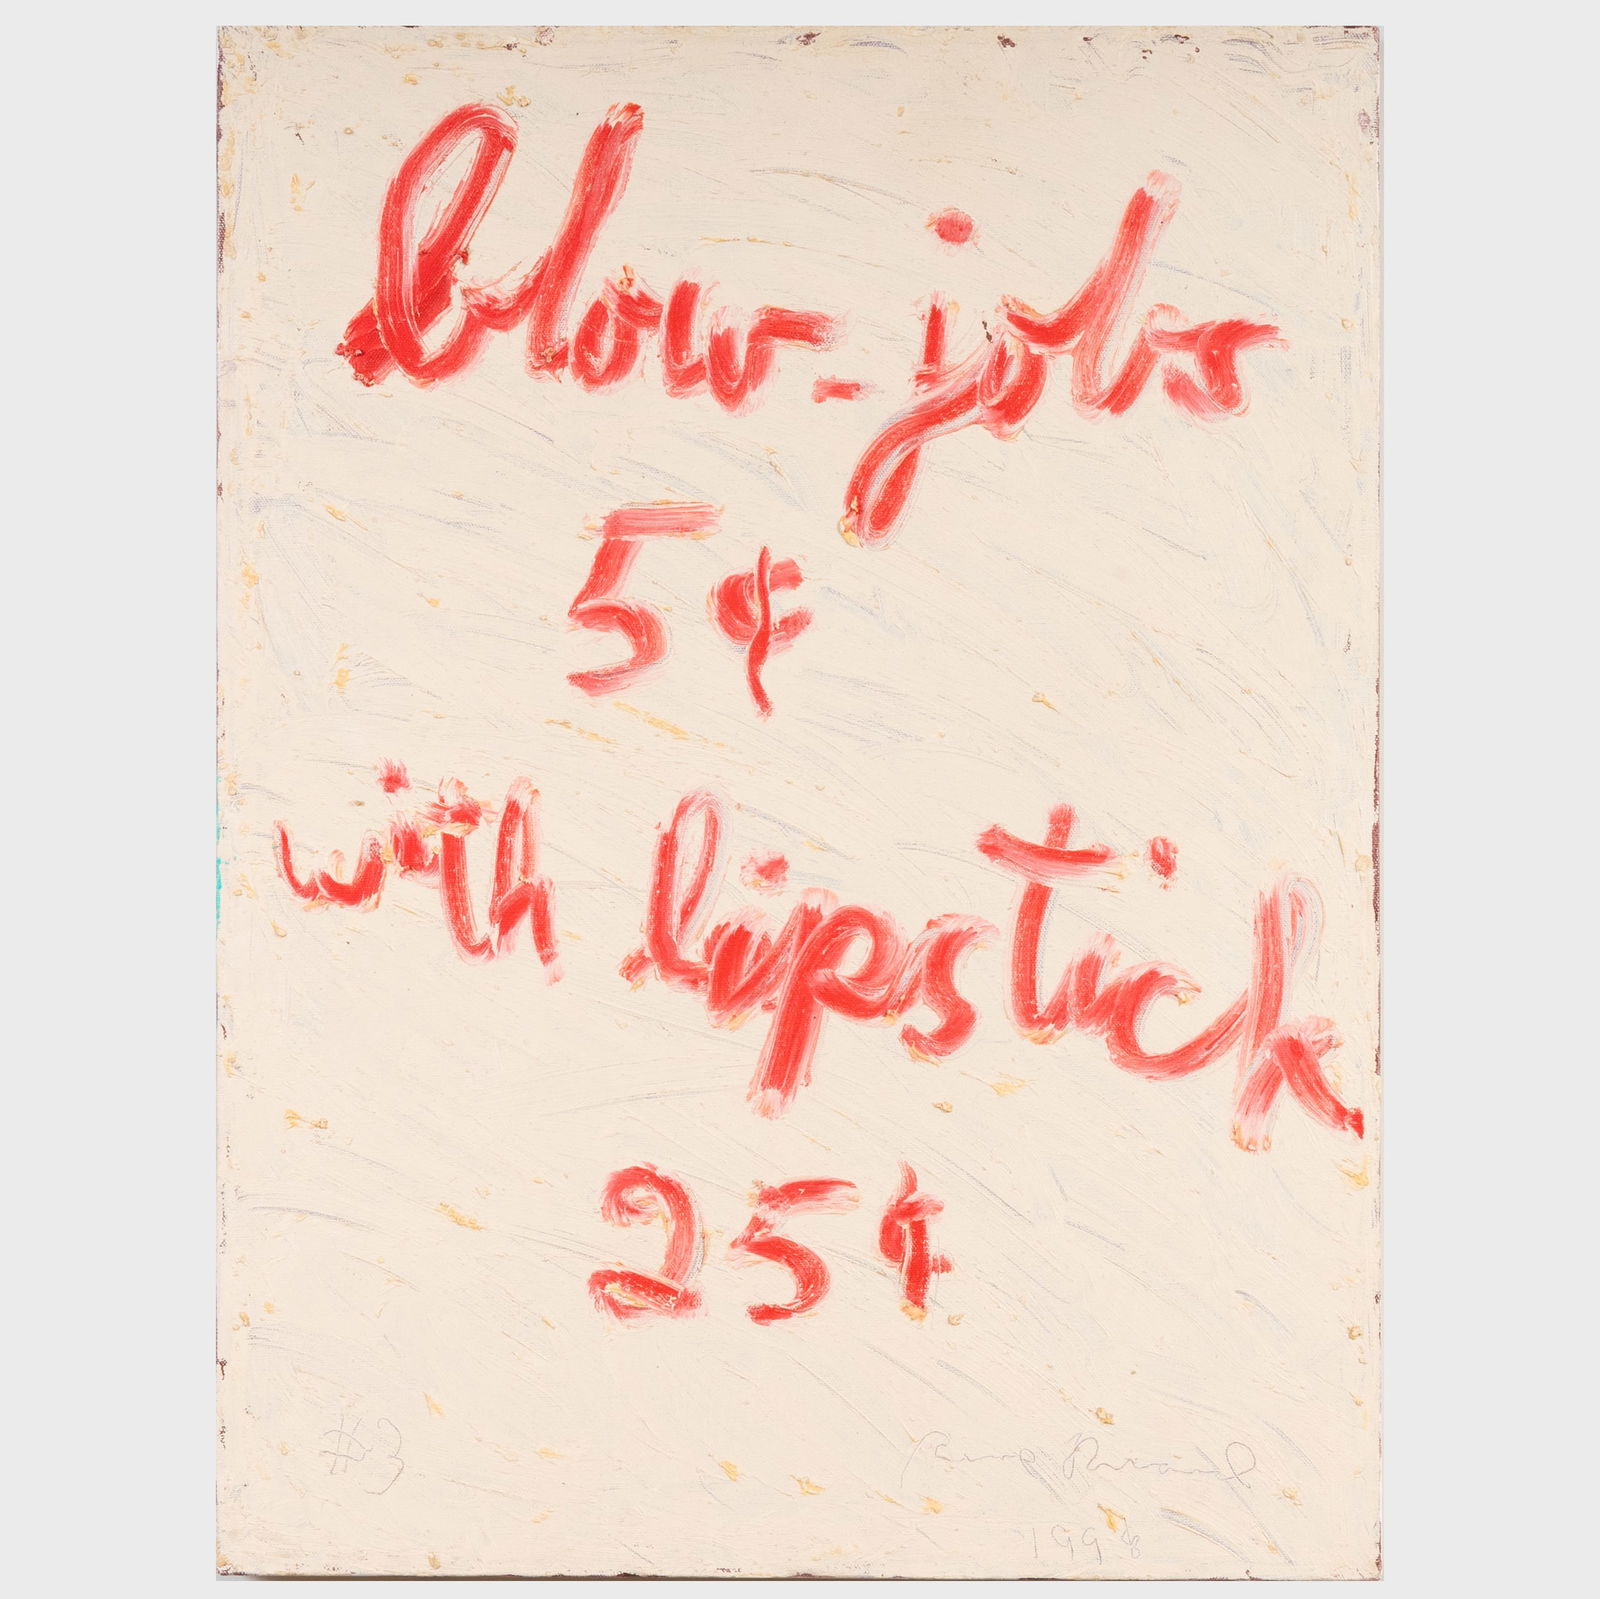 blow-jobs
5¢
with lipstick
25¢
#3
1998